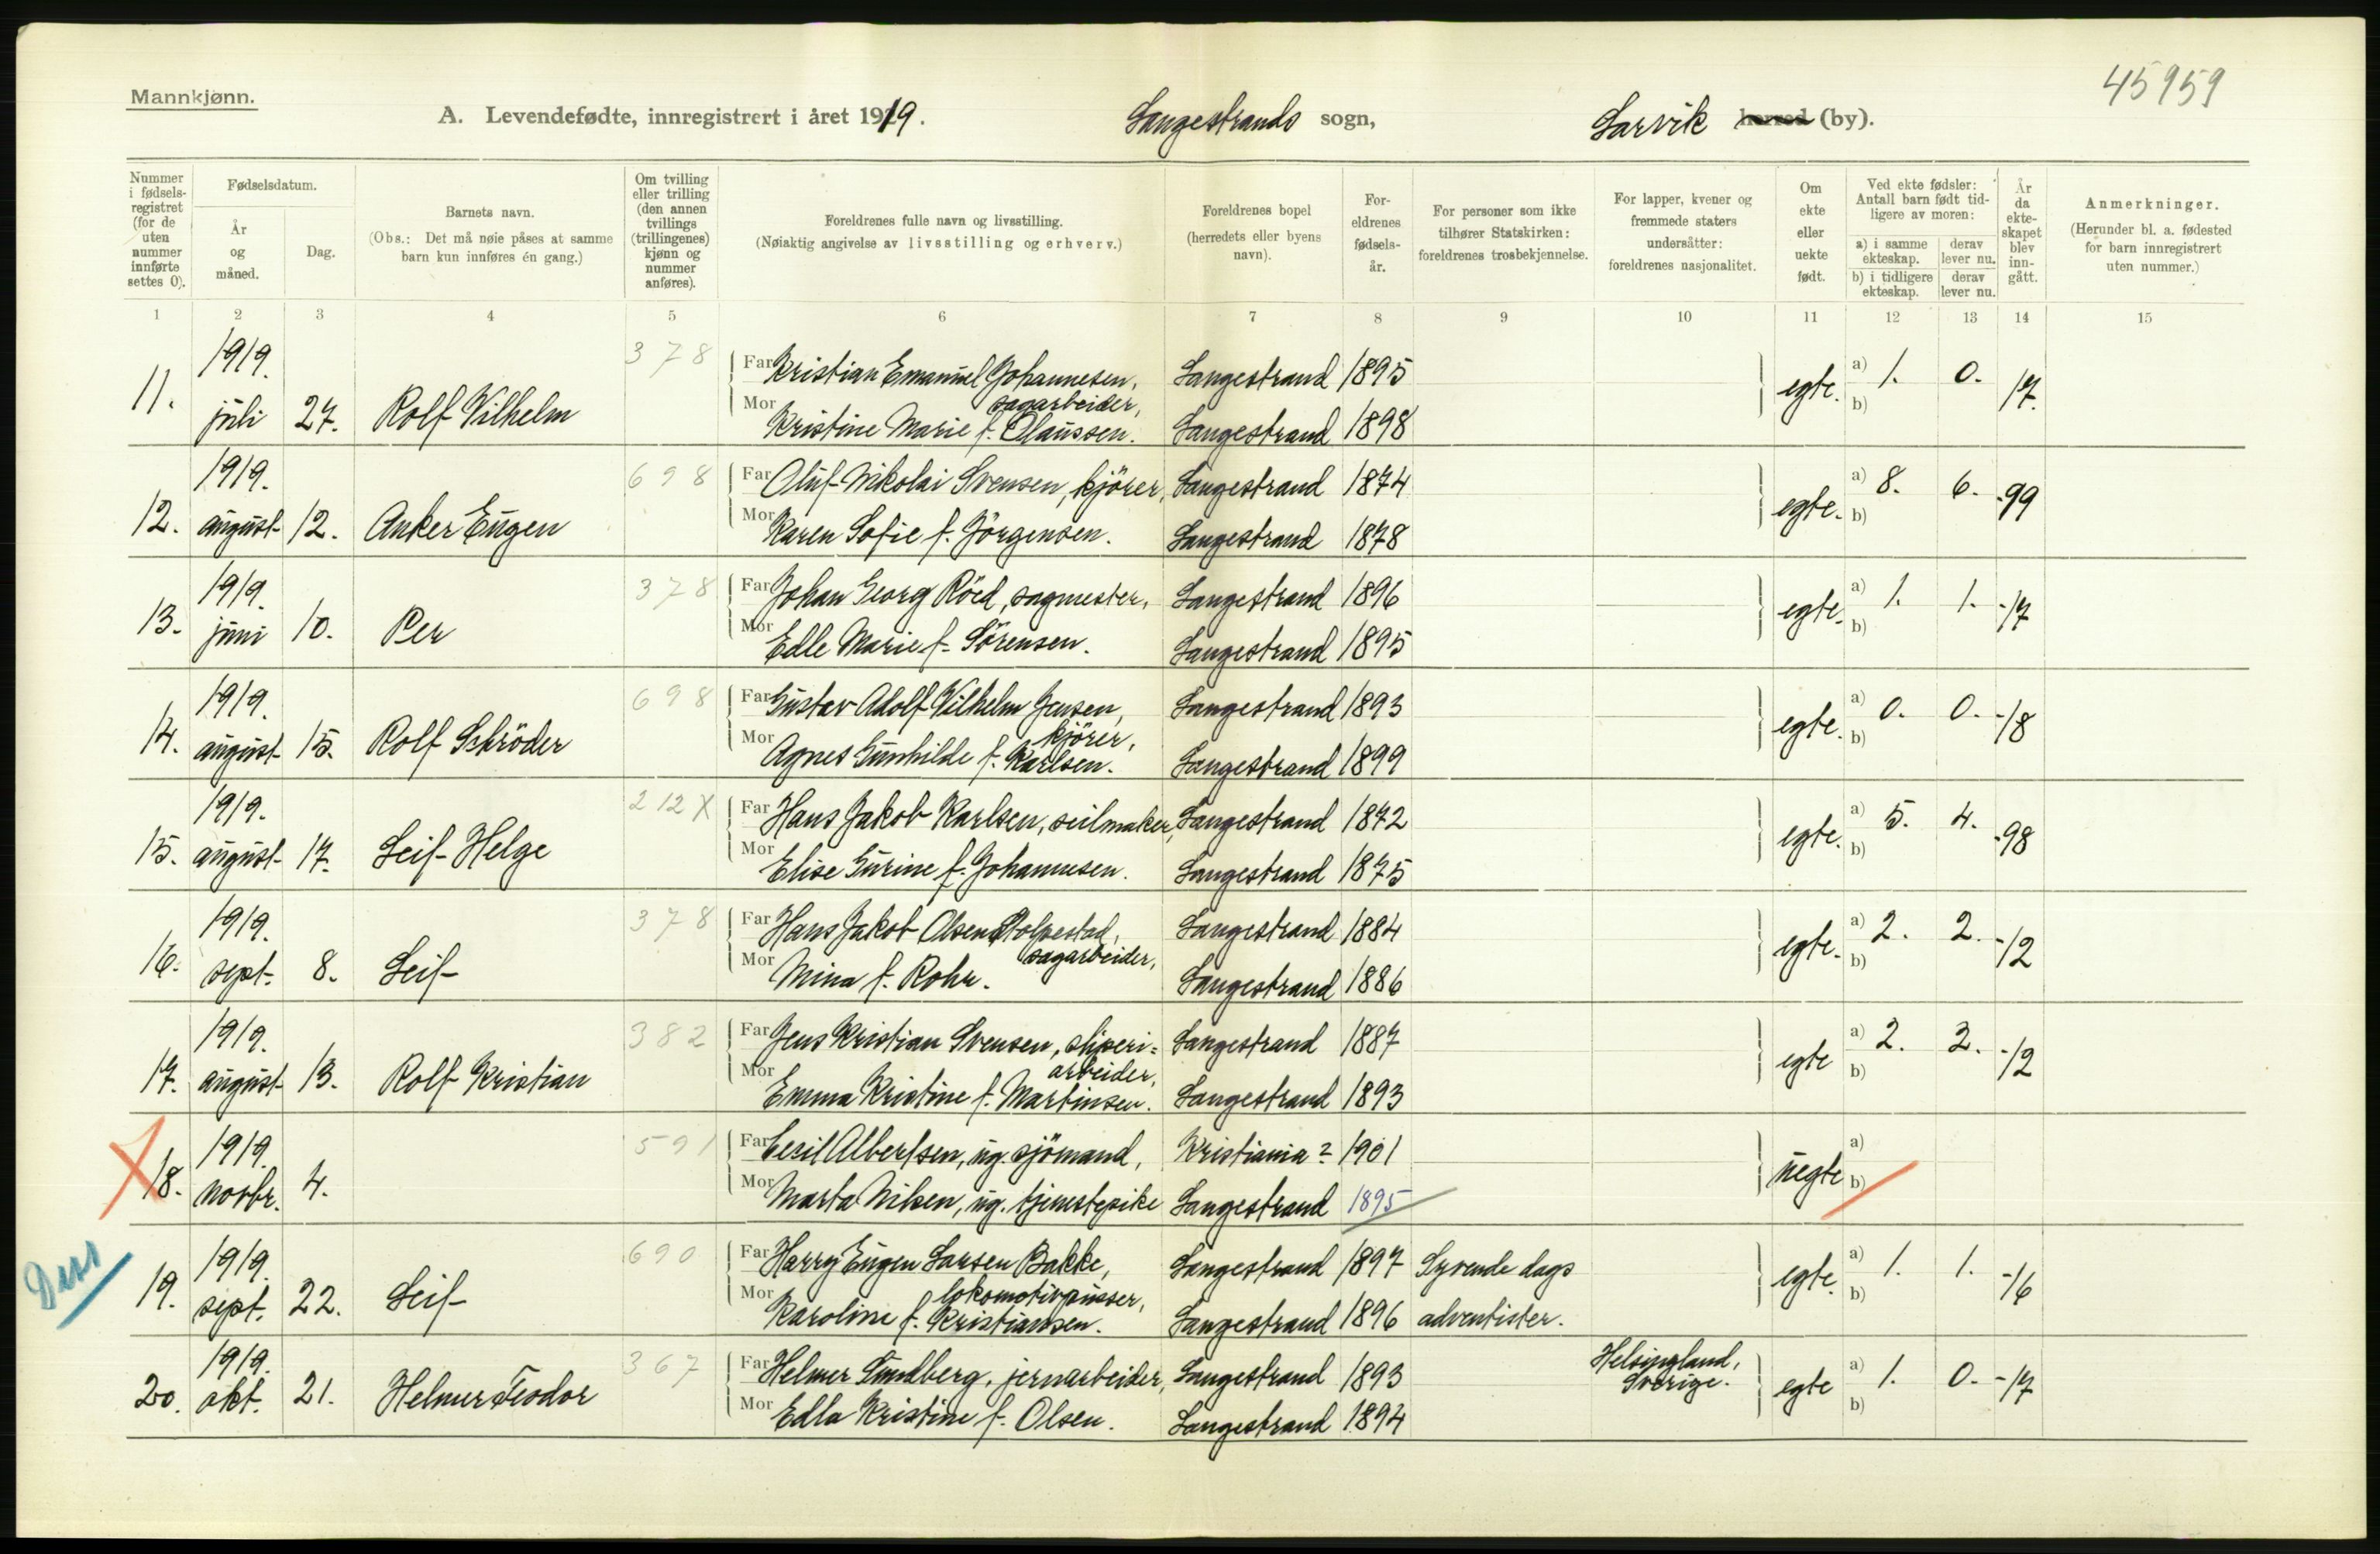 45959
Mannkjønn.
A. Levendefødte, innregistrert i året 1919. Langestrands sogn, Larvik herred (by).
Nummer i fødselsregistret (for de uten nummer innførte settes 0).
Fødselsdatum.
År og måned.
Dag.
Barnets navn.
(Obs.: Det må nøie påses at samme barn kun innføres én gang.)
Om tvilling eller trilling (den annen tvillings (trillingenes) kjønn og nummer anføres).
Foreldrenes fulle navn og livsstilling.
(Nøiaktig angivelse av livsstilling og erhverv.)
Foreldrenes bopel (herredets eller byens navn).
Foreldrenes fødselsår.
For personer som ikke tilhører Statskirken: foreldrenes trosbekjennelse.
For lapper, kvener og fremmede staters undersåtter: foreldrenes nasjonalitet.
Om ekte eller uekte født.
Ved ekte fødsler: Antall barn født tidligere av moren:
a) i samme ekteskap. derav lever nu.
b) i tidligere ekteskap. derav lever nu.
År da ekteskapet blev inngått.
Anmerkninger.
(Herunder bl. a. fødested for barn innregistrert uten nummer.)
1 2 3 4 5 6 7 8 9 10 11 12 13 14 15
11. 1919. juli 27. Rolf Vilhelm 378
Far Kristian Emanuel Johannesen, sagarbeider, Langestrand 1895 egte. a) 1. 0. 17.
Mor Kristine Marie f. Olaussen. Langestrand 1898 b)
12. 1919. august 12. Anker Eugen 698
Far Oluf Nikolai Svensen, kjörer, Langestrand 1874 egte. a) 8. 6. -99
Mor Karen Sofie f. Jörgensen. Langestrand 1878 b)
13. 1919. juni 10. Per 378
Far Johan Georg Röed, sagmester, Langestrand 1896 egte. a) 1. 1. -17
Mor Edle Marie f. Sörensen. Langestrand 1895 b)
14. 1919. august 15. Rolf Schröder 698
Far Gustav Adolf Vilhelm Jensen, kjörer, Langestrand 1893 egte. a) 0. 0. -18
Mor Agnes Gunhilde f. Karlsen. Langestrand 1899 b)
15. 1919. august 17. Leif Helge 212 X
Far Hans Jakob Karlsen, seilmaker, Langestrand 1872 egte. a) 5. 4. -98
Mor Elise Gurine f. Johannesen. Langestrand 1875 b)
16. 1919. sept. 8. Leif 378
Far Hans Jakob Olsen Stolpestad, sagarbeider, Langestrand 1884 egte. a) 2. 2. -12
Mor Mina f. Rohn. Langestrand 1886 b)
17. 1919. august 13. Rolf Kristian 382
Far Jens Kristian Svensen, sliperi=arbeider, Langestrand 1887 egte a) 2. 2. -12
Mor Emma Kristine f. Martinsen. Langestrand 1893 b)
18. 1919. novbr. 4. 591
Far Cecil Albertsen, ug. sjömand, Kristiania? 1901 uegte a)
Mor Marta Nilsen, ug. tjenestepike Langestrand 1895 b)
19. 1919. sept. 22. Leif 690
Far Harry Eugen Larsen Bakke, lokomotivpusser, Langestrand 1897 Syvende dags egte. a) 1. 1. -16
Mor Karoline f. Kristiansen. Langestrand 1896 adventister. b)
20. 1919. okt. 21. Helmer Teodor 367
Far Helmer Sundberg, jernarbeider, Langestrand 1893 Helsingland, Sverige. egte a) 1. 0. -17
Mor Edla Kristine f. Olsen. Langestrand 1894 b)